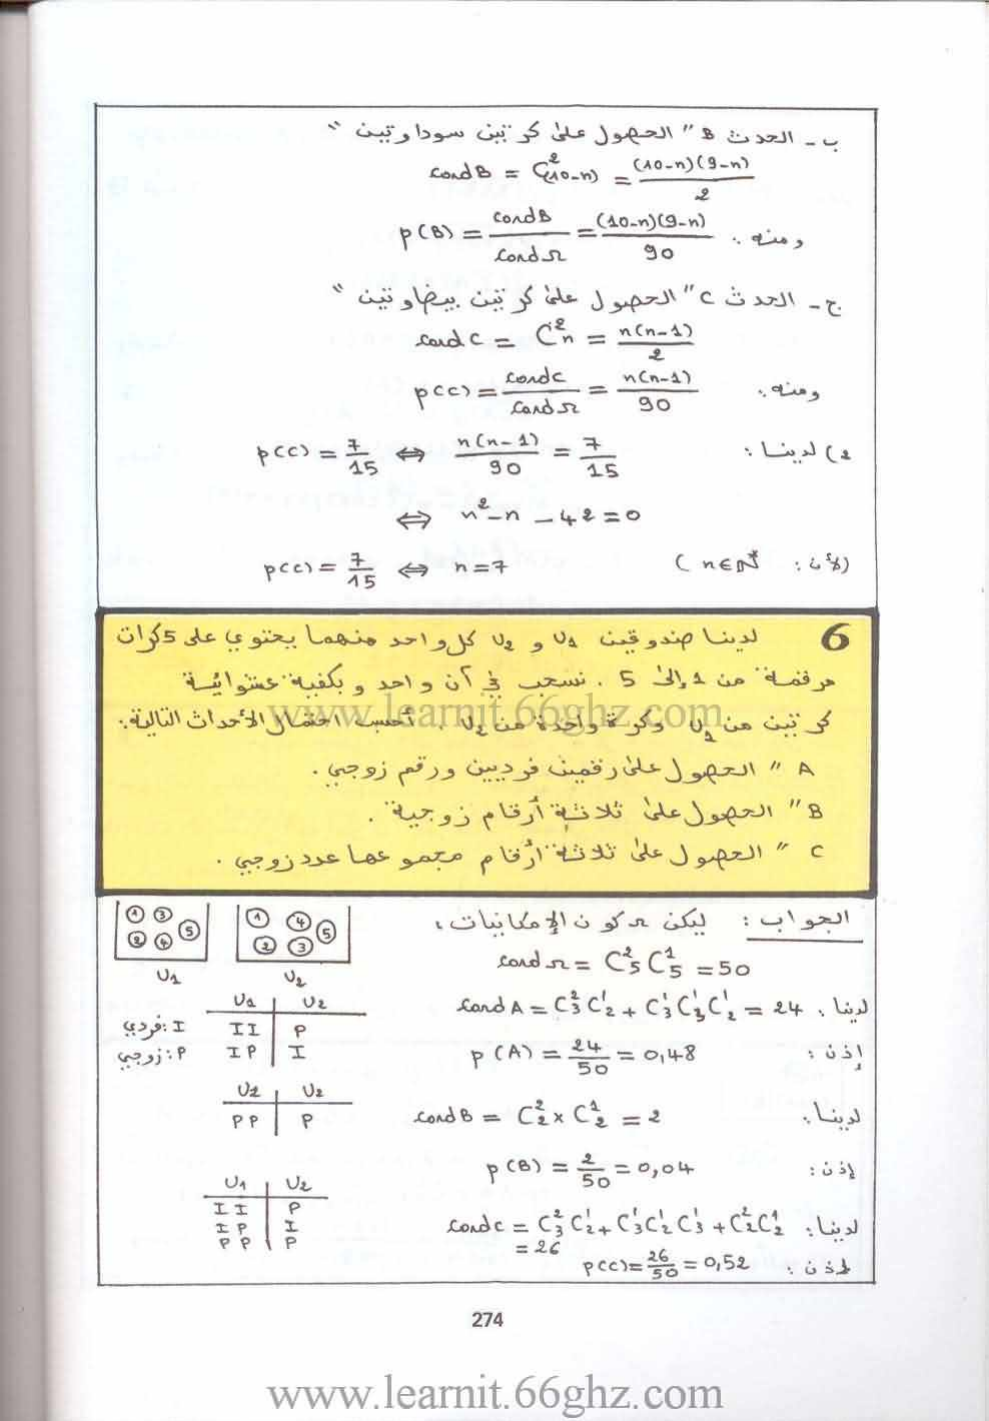 ب - الحدث B " الحصول على كرتين سوداوتين "
cardB = C²(10-n) = (10-n)(9-n)/2
ومنه : p(B) = cardB/cardΩ = (10-n)(9-n)/90
ج - الحدث C " الحصول على كرتين بيضاوتين "
cardC = C²n = n(n-1)/2
ومنه : p(C) = cardC/cardΩ = n(n-1)/90
2) لدينا : p(C) = 7/15 ⇔ n(n-1)/90 = 7/15
⇔ n²-n-42=0
(لأن : n∈ℕ*) p(C) = 7/15 ⇔ n=7
6 لدينا صندوقين U1 و U2 كل واحد منهما يحتوي على 5 كرات
مرقمة من 1 إلى 5 . نسحب في آن واحد و بكفية عشوائية
كرتين من U1 وكرة واحدة من U2 . أحسب احتمال الأحداث التالية :
www.learnit.66ghz.com
A " الحصول على رقمين فرديين ورقم زوجي .
B " الحصول على ثلاثة أرقام زوجية .
C " الحصول على ثلاثة أرقام مجموعها عدد زوجي .
الجواب : ليكن Ω كون الإمكانيات ،
1 3 5 2 4 U1
1 4 5 2 3 U2
cardΩ = C²5 C¹5 = 50
لدينا : cardA = C²3 C¹2 + C¹3 C¹3 C¹2 = 24
U1 | U2
I I | P
I P | I
I : فردي
P : زوجي
إذن : p(A) = 24/50 = 0,48
U1 | U2
P P | P
لدينا : cardB = C²2 × C¹2 = 2
إذن : p(B) = 2/50 = 0,04
U1 | U2
I I | P
I P | I
P P | P
لدينا : cardC = C²3 C¹2 + C¹3 C¹2 C¹3 + C²2 C¹2
= 26
إذن : p(C) = 26/50 = 0,52
274
www.learnit.66ghz.com